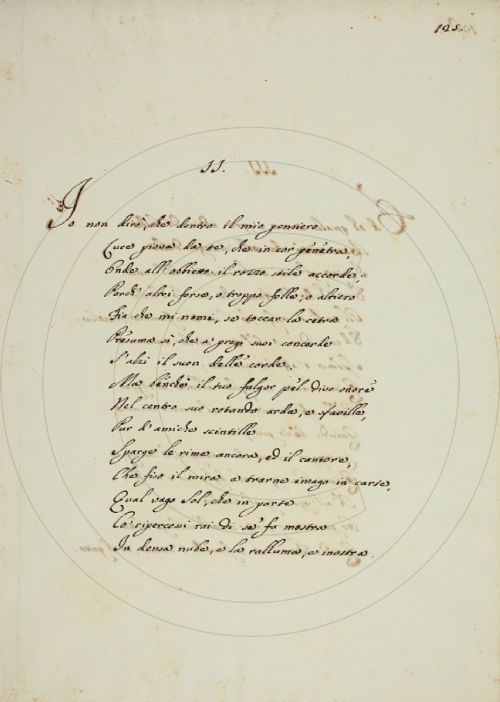 125.
II.
Io non dirò, che dentro il mio pensiero
Luce piova da te, che in cor penetra,
Onde all'obbietto il rozzo stile accorde,
Perch' altri forse, o troppo folle, o altiero
Fia che mi nomi, se toccar la cetra
Presuma sì, che a' pregi suoi concorde
S'alzi il suon delle corde.
Ma benchè il tuo fulgor pel divo onore
Nel centro suo rotando arda, e sfaville,
Pur d'amiche scintille
Sparge le rime ancora, ed il cantore,
Che fiso il mira a trarne imago in carte,
Qual vago Sol, che in parte
Co' ripercossi rai di se fa mostra
In densa nube, e la ralluma, e inostra.